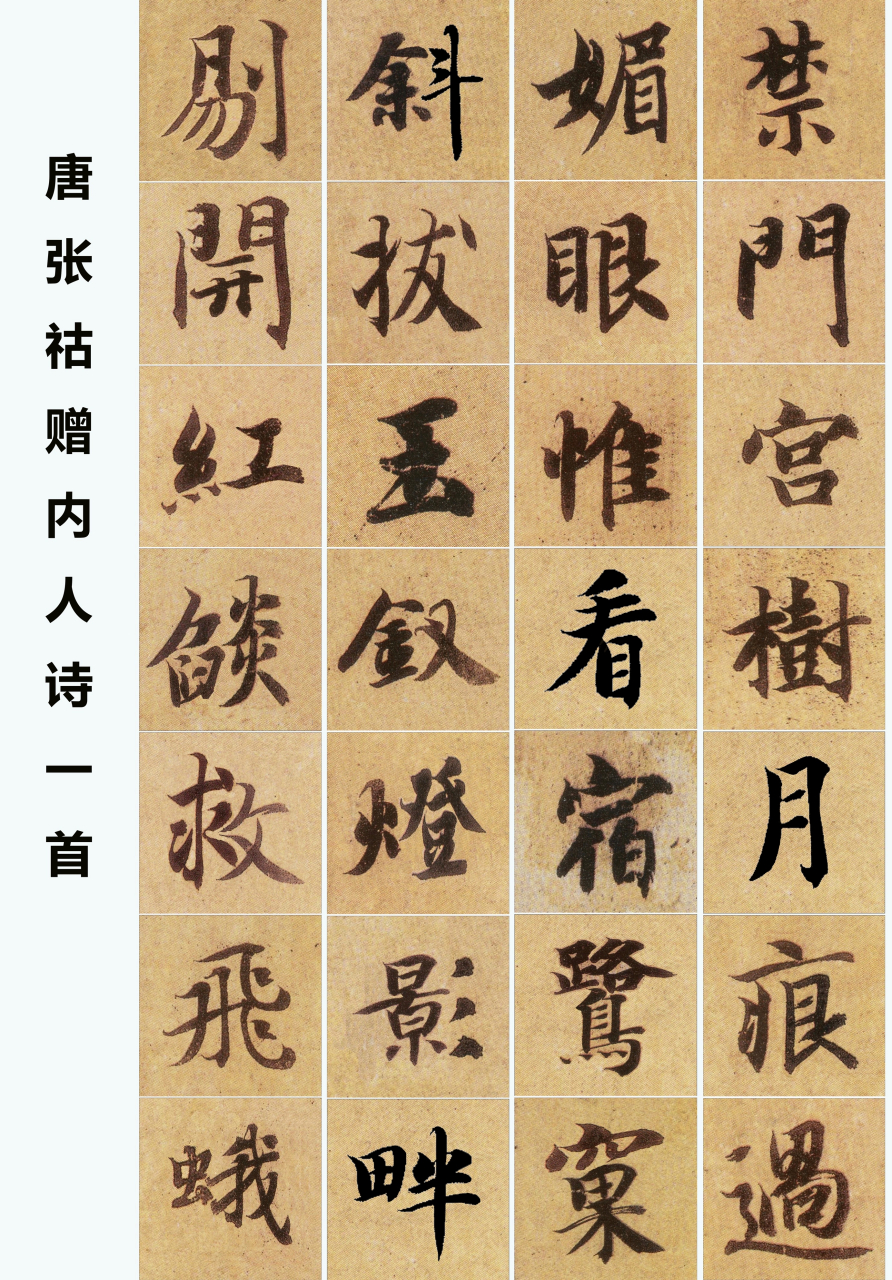 禁門宮樹月痕過
媚眼惟看宿鷺窠
斜拔玉釵燈影畔
剔開紅燄救飛蛾
唐张祜赠内人诗一首